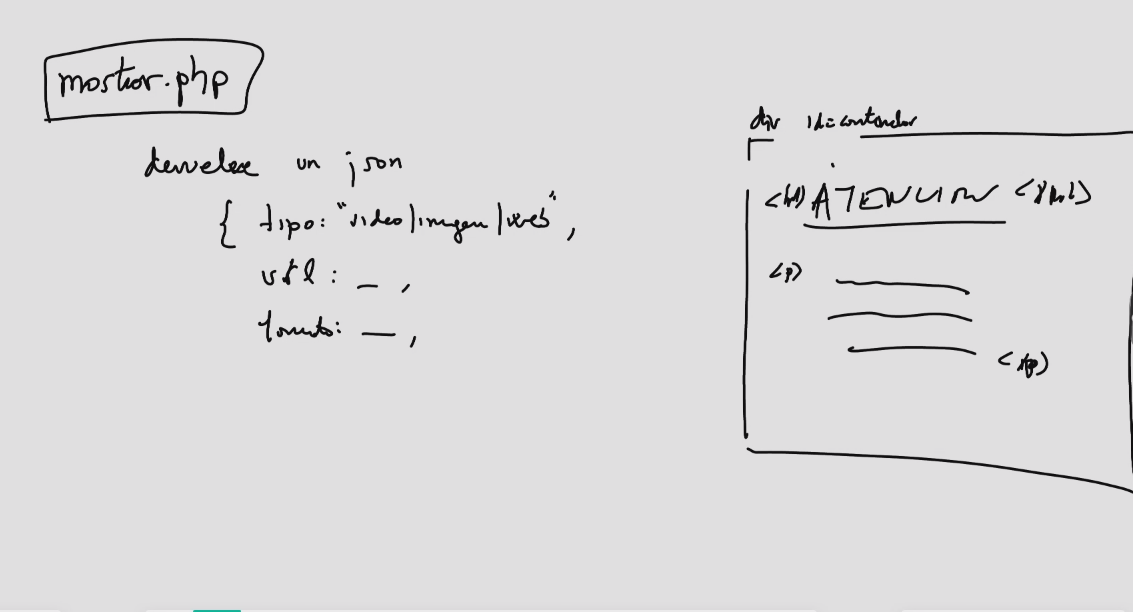 mostrar.php
devuelve un json
{ tipo: "video/imagen/web",
url: _ ,
formato: _ ,
div id=contenedor
<h1> ATENCION </h1>
<p>
</p>